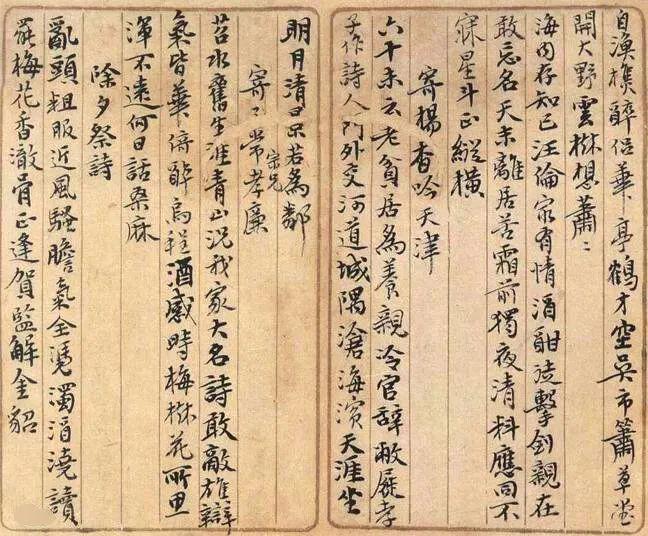 自漁樵醉侶華亭鶴才空吳市簫草堂
開大野雲樹想蕭〻
海內存知己汪倫家有情酒酣徒擊劍親在
敢忘名天末離居苦霜前獨夜清料應同不
寐星斗正縱橫
寄楊香吟天津
六十未云老貧居為養親冷官辭敝屣孝
子作詩人門外交河道城隅滄海濱天涯坐
明月清若為鄰
寄〻常宗兄孝廉
苕水舊生涯青山況我家大名詩敢敵雄辯
氣皆華倚醉烏程酒感時梅樹花所思
渾不遠何日話桑麻
除夕祭詩
亂頭粗服近風騷膽氣全憑濁酒澆讀
罷梅花香澈骨正逢賀監解金貂